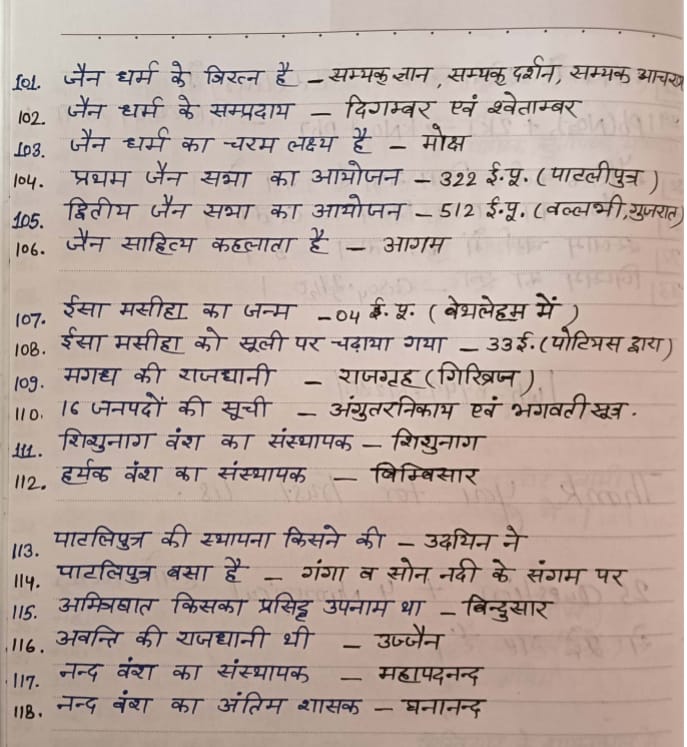 101. जैन धर्म के त्रिरत्न है – सम्यक् ज्ञान, सम्यक् दर्शन, सम्यक् आचरण
102. जैन धर्म के सम्प्रदाय – दिगम्बर एवं श्वेताम्बर
103. जैन धर्म का चरम लक्ष्य है – मोक्ष
104. प्रथम जैन सभा का आयोजन – 322 ई.पू. (पाटलीपुत्र)
105. द्वितीय जैन सभा का आयोजन – 512 ई.पू. (वल्लभी, गुजरात)
106. जैन साहित्य कहलाता है – आगम
107. ईसा मसीहा का जन्म – 04 ई.पू. (बेथलेहम में)
108. ईसा मसीहा को सूली पर चढाया गया – 33 ई. (पोटियस द्वारा)
109. मगध की राजधानी – राजगृह (गिरिव्रज)
110. 16 जनपदों की सूची – अंगुतरनिकाय एवं भगवती सूत्र.
111. शिशुनाग वंश का संस्थापक – शिशुनाग
112. हर्यक वंश का संस्थापक – बिम्बिसार
113. पाटलिपुत्र की स्थापना किसने की – उदयिन ने
114. पाटलिपुत्र बसा है – गंगा व सोन नदी के संगम पर
115. अमित्रघात किसका प्रसिद्द उपनाम था – बिन्दुसार
116. अवन्ति की राजधानी थी – उज्जैन
117. नन्द वंश का संस्थापक – महापदनन्द
118. नन्द वंश का अंतिम शासक – घनानन्द